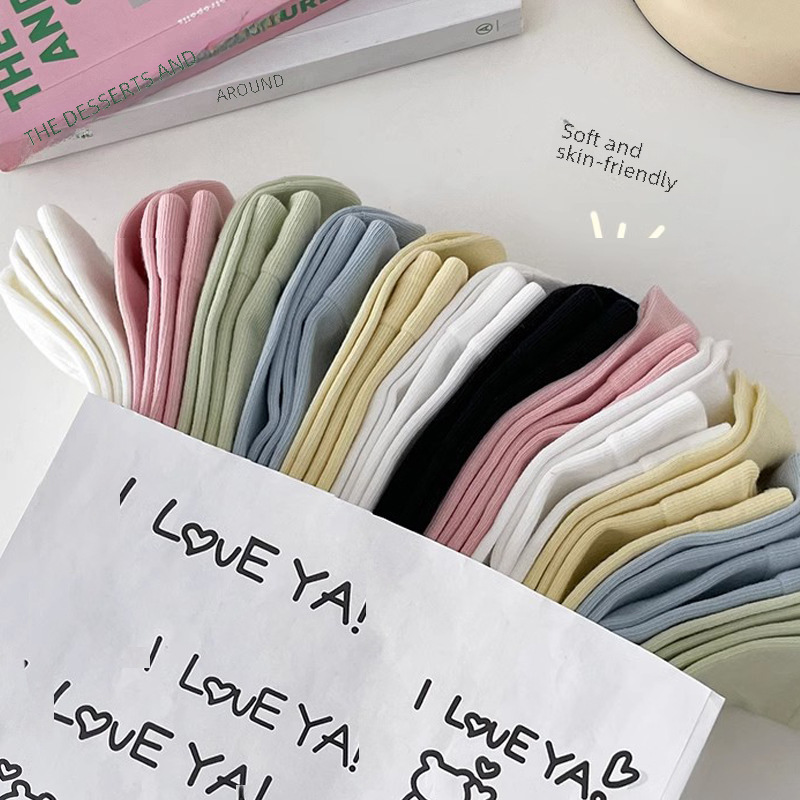 THE
AND
THE DESSERTS AND
AROUND
Soft and
skin-friendly
I LOVE YA!
I LOVE YA!
LOVE YA!
I LOVE YA!